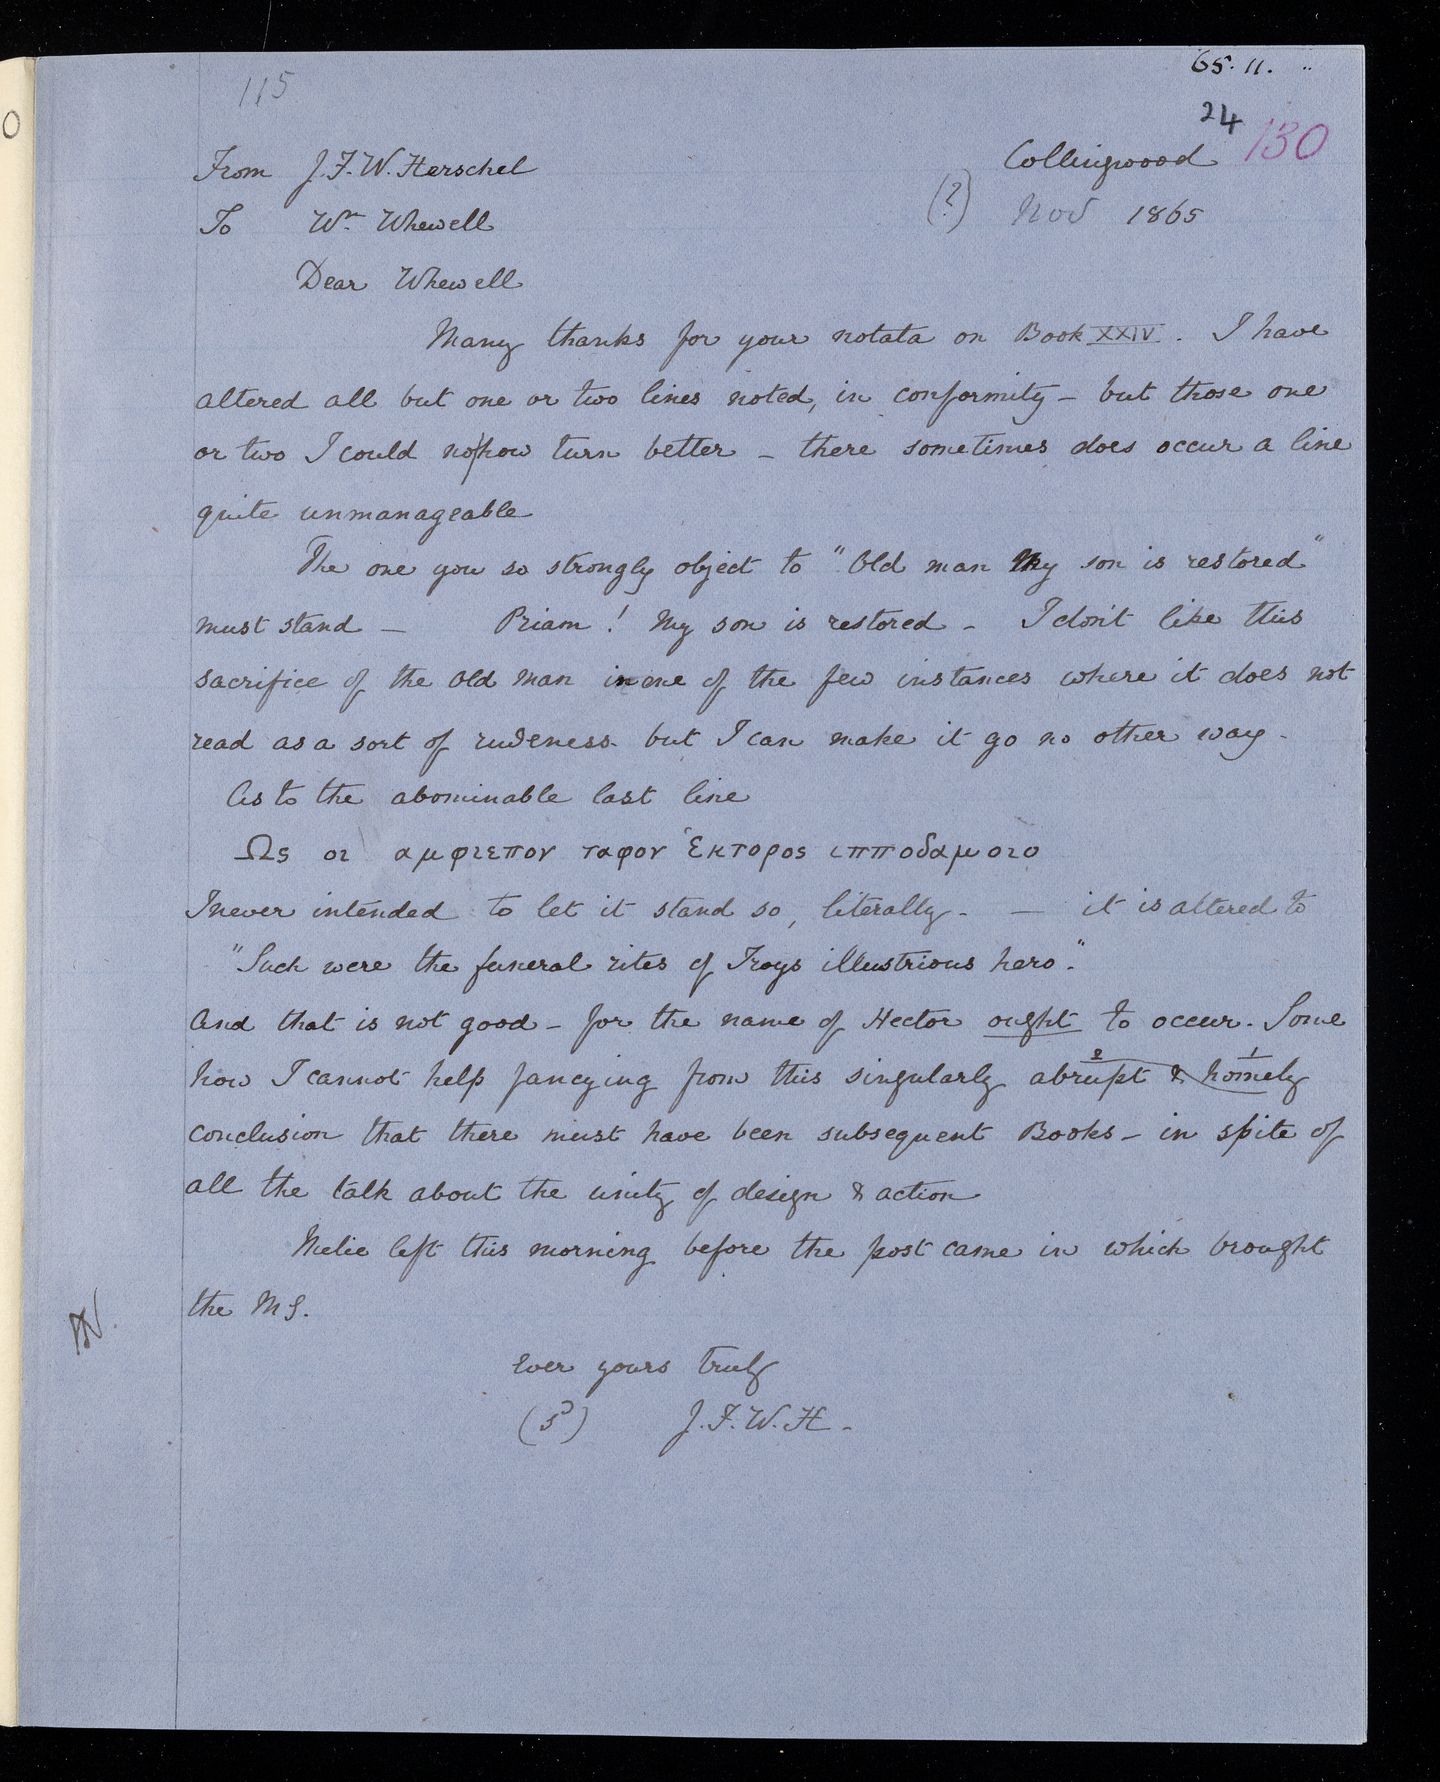 115
65. 11. ..
24
130
From J.F.W. Herschel
Collingwood
To Wm Whewell
(?) Nov 1865
Dear Whewell
Many thanks for your notata on Book XXIV. I have
altered all but one or two lines noted, in conformity - but those one
or two I could no how turn better - there sometimes does occur a line
quite unmanageable
The one you so strongly object to "Old man thy son is restored"
must stand - Priam! My son is restored - I don't like this
sacrifice of the old man in one of the few instances where it does not
read as a sort of rudeness - but I can make it go no other way -
As to the abominable last line
Ως οι αμφιεπον ταφον Έκτορος ιπποδαμοιο
I never intended to let it stand so, literally - - it is altered to
"Such were the funeral rites of Troys illustrious hero."
And that is not good - for the name of Hector ought to occur. Some
how I cannot help fancying from this singularly abrupt & homely
2 1
conclusion that there must have been subsequent Books - in spite of
all the talk about the unity of design & action
Melie left this morning before the post came in which brought
the MS.
Ever yours truly
(sd) J.F.W.H -